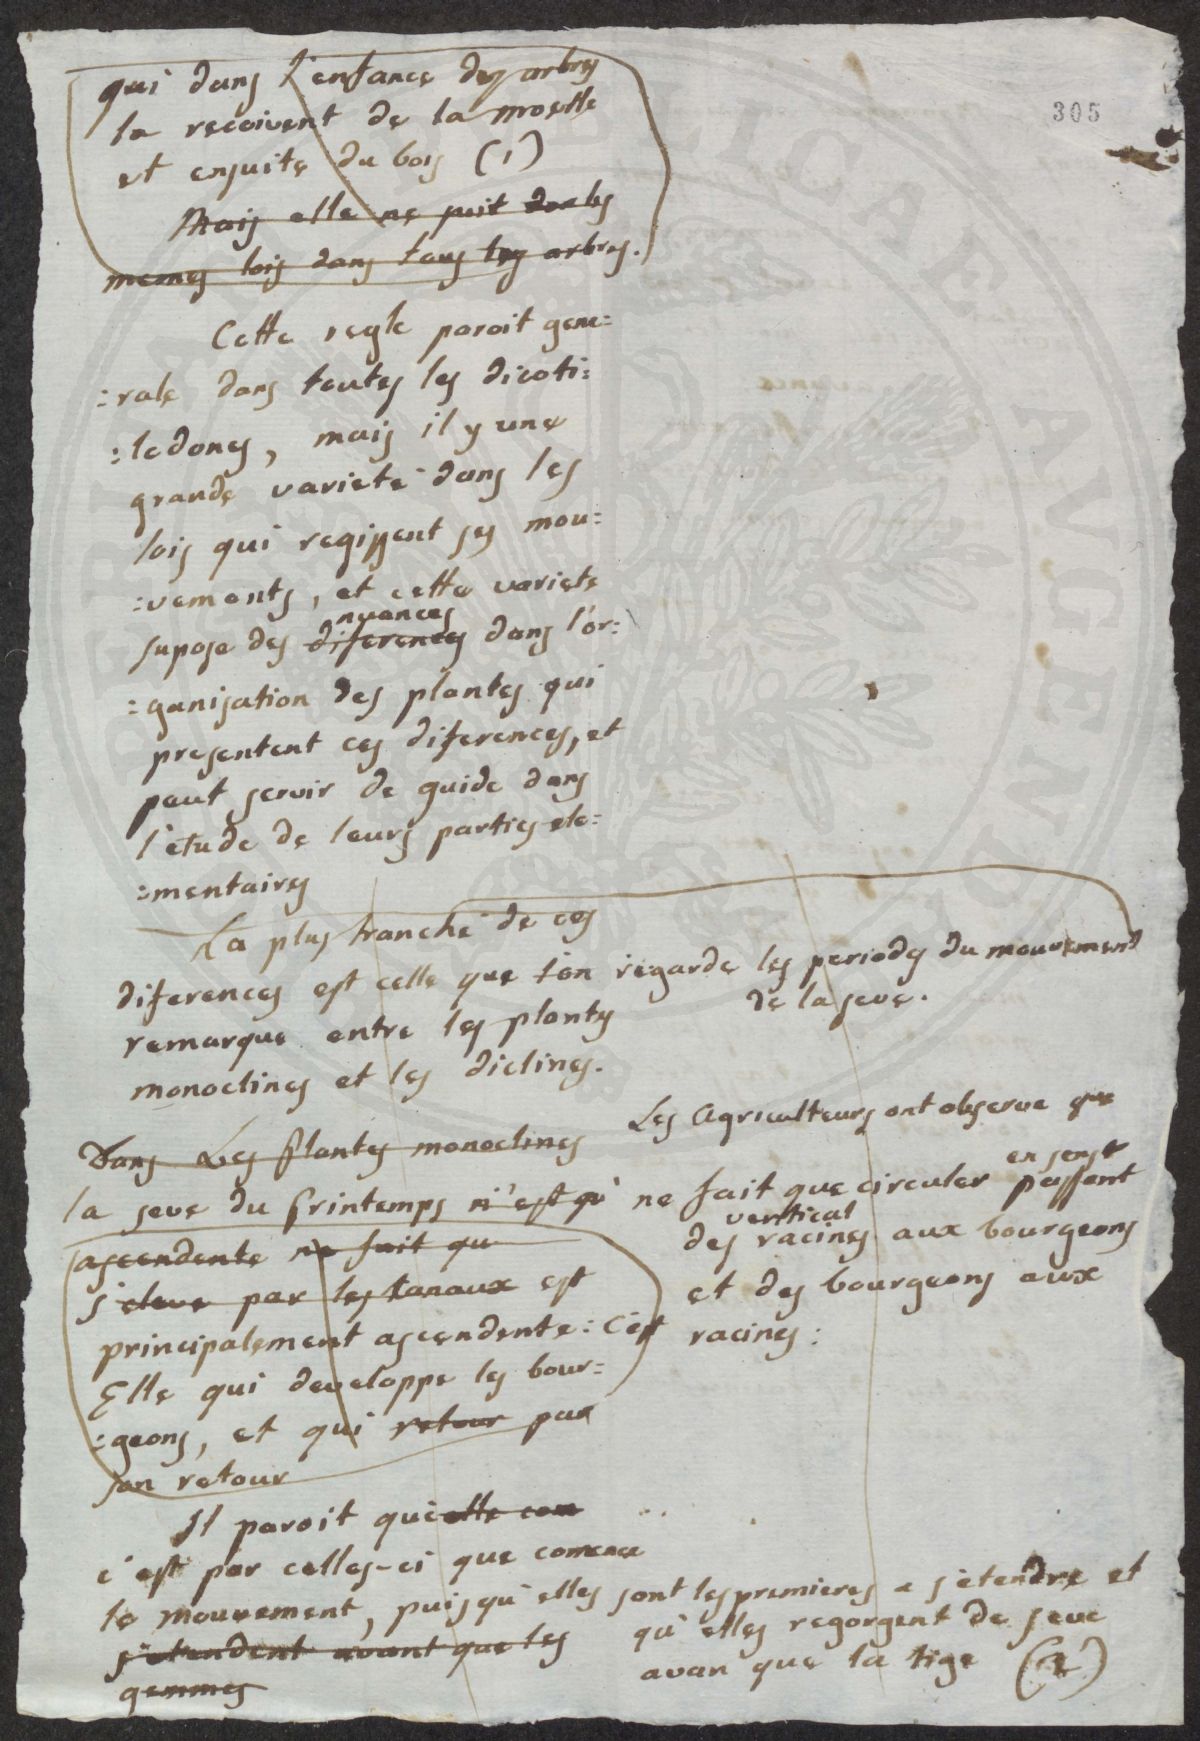 305
qui dans l'enfance des arbres
la recoivent de la moelle
et ensuite du bois (1)
Mais elle ne suit
memes lois dans tous les arbres.
Cette regle paroit gene=
=rale dans toutes les dicoti=
=ledones, mais il y une
grande varieté dans les
lois qui regissent ses mou=
=vements, et cette varieté
nuances
supose des diferences dans l'or=
=ganisation des plantes qui
presentent ces diferences, et
peut servir de guide dans
l'etude de leurs parties ele=
=mentaires
La plus tranché de ces
diferences est celle que l'on regarde les periodes du mouvement
de la seve.
remarque entre les plantes
monoclines et les diclines.
Les Agriculteurs ont observe que
Dans Les Plantes monoclines
en sens
la seve du Printemps n'est qu' ne fait que circuler passent
vertical
des racines aux bourgeons
ascendente ne fait qu
et des bourgeons aux
s'eleve par les canaux est
principalement ascendente: C'est racines:
Elle qui developpe les bour=
=geons, et qui retour par
son retour
Il paroit que elle com
c'est par celles-ci que comence
le mouvement, puisqu'elles sont les premieres a s'etendre et
s'etendent avant que les qu'elles regorgent de seve
gemmes avan que la tige